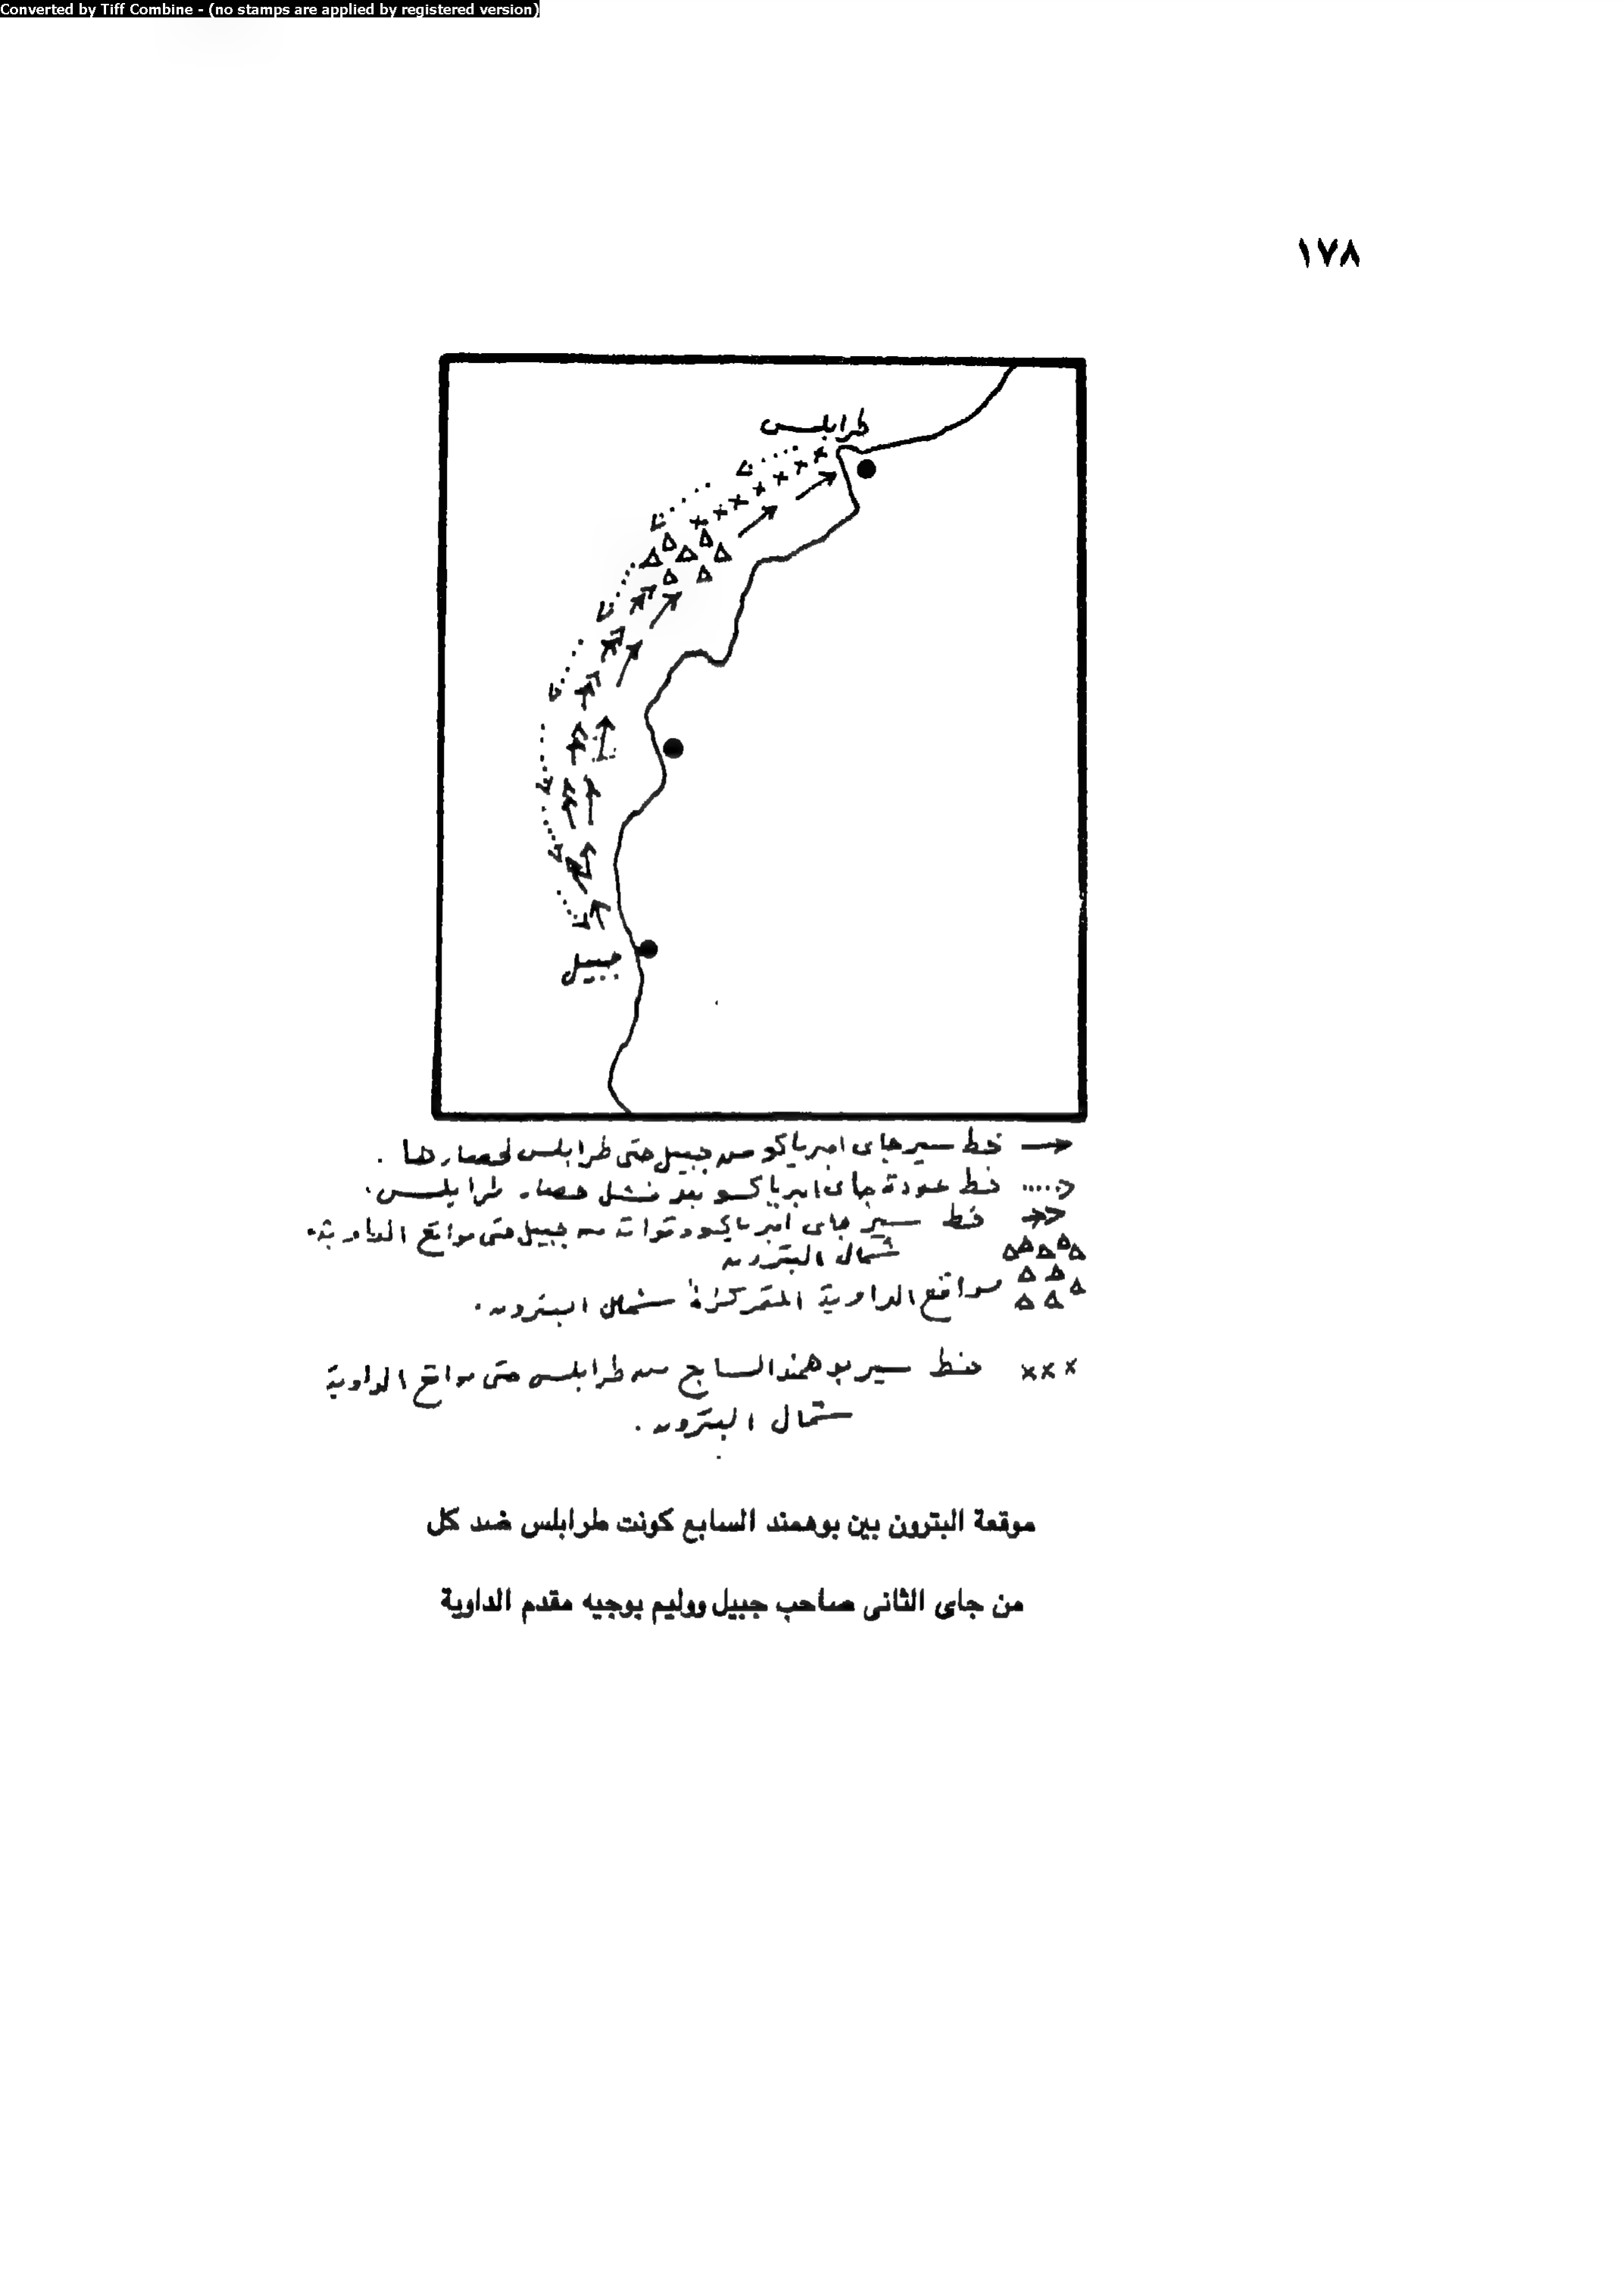 Converted by Tiff Combine - (no stamps are applied by registered version)
١٧٨
طرابلس
جبيل
خط سير جاى امبرياكو من جبيل حتى طرابلس لحصارها .
خط عودة جاى امبرياكو بعد فشل حصار طرابلس .
خط سير جاى امبرياكو وقواته من جبيل حتى مواقع الداوية .
شمال البترون
مواقع الداوية المتمركزة شمال البترون .
خط سير بوهمند السابع من طرابلس حتى مواقع الداوية
شمال البترون .
موقعة البترون بين بوهمند السابع كونت طرابلس ضد كل
من جاى الثانى صاحب جبيل ووليم بوجيه مقدم الداوية